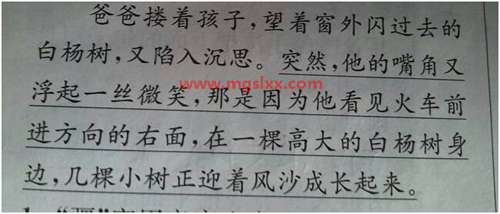 爸爸搂着孩子,望着窗外闪过去的
白杨树,又陷入沉思。突然,他的嘴角又
www.mgslxx.com
浮起一丝微笑,那是因为他看见火车前
进方向的右面,在一棵高大的白杨树身
边,几棵小树正迎着风沙成长起来。